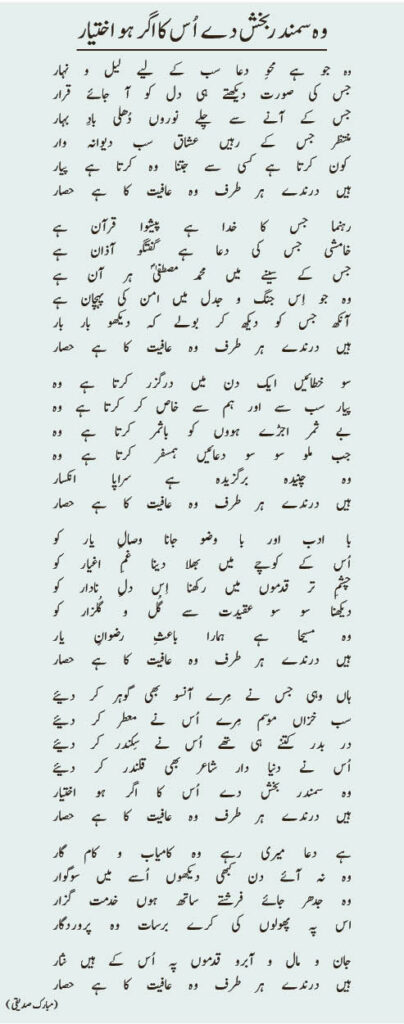 وہ سمندر بخش دے اُس کا اگر ہو اختیار
وہ جو ہے محوِ دعا سب کے لیے لیل و نہار
جس کی صورت دیکھتے ہی دل کو آ جائے قرار
جس کے آنے سے چلے نوروں دُھلی بادِ بہار
منتظر جس کے رہیں عشاق سب دیوانہ وار
کون کرتا ہے کسی سے جتنا وہ کرتا ہے پیار
ہیں درندے ہر طرف وہ عافیت کا ہے حصار
رہنما جس کا خدا ہے پیشوا قرآن ہے
خامشی جس کی دعا ہے گفتگو آذان ہے
جس کے سینے میں محمد مصطفیٰؐ ہر آن ہے
وہ جو اِس جنگ و جدل میں امن کی پہچان ہے
آنکھ جس کو دیکھ کر بولے کہ دیکھو بار بار
ہیں درندے ہر طرف وہ عافیت کا ہے حصار
سو خطائیں ایک دن میں درگزر کرتا ہے وہ
پیار سب سے اور ہم سے خاص کر کرتا ہے وہ
بے ثمر اجڑے ہووں کو باثمر کرتا ہے وہ
جب ملو سو سو دعائیں ہمسفر کرتا ہے وہ
وہ چنیدہ برگزیدہ ہے سراپا انکسار
ہیں درندے ہر طرف وہ عافیت کا ہے حصار
با ادب اور با وضو جانا وصالِ یار کو
اُس کے کوچے میں بھلا دینا غمِ اغیار کو
چشمِ تر قدموں میں رکھنا اِس دلِ نادار کو
دیکھنا سو سو عقیدت سے گُل و گلزار کو
وہ مسیحا ہے ہمارا باعثِ رضوانِ یار
ہیں درندے ہر طرف وہ عافیت کا ہے حصار
ہاں وہی جس نے مِرے آنسو بھی گوہر کر دیئے
سب خزاں موسم مِرے اُس نے معطر کر دیئے
در بدر کتنے ہی تھے اُس نے سِکندر کر دیئے
اُس نے دنیا دار شاعر بھی قلندر کر دیئے
وہ سمندر بخش دے اُس کا اگر ہو اختیار
ہیں درندے ہر طرف وہ عافیت کا ہے حصار
ہے دعا میری رہے وہ کامیاب و کام گار
وہ نہ آئے دن کبھی دیکھوں اُسے میں سوگوار
وہ جدھر جائے فرشتے ساتھ ہوں خدمت گزار
اس پہ پھولوں کی کرے برسات وہ پروردگار
جان و مال و آبرو قدموں پہ اُس کے ہیں نثار
ہیں درندے ہر طرف وہ عافیت کا ہے حصار
(مبارک صدیقی)